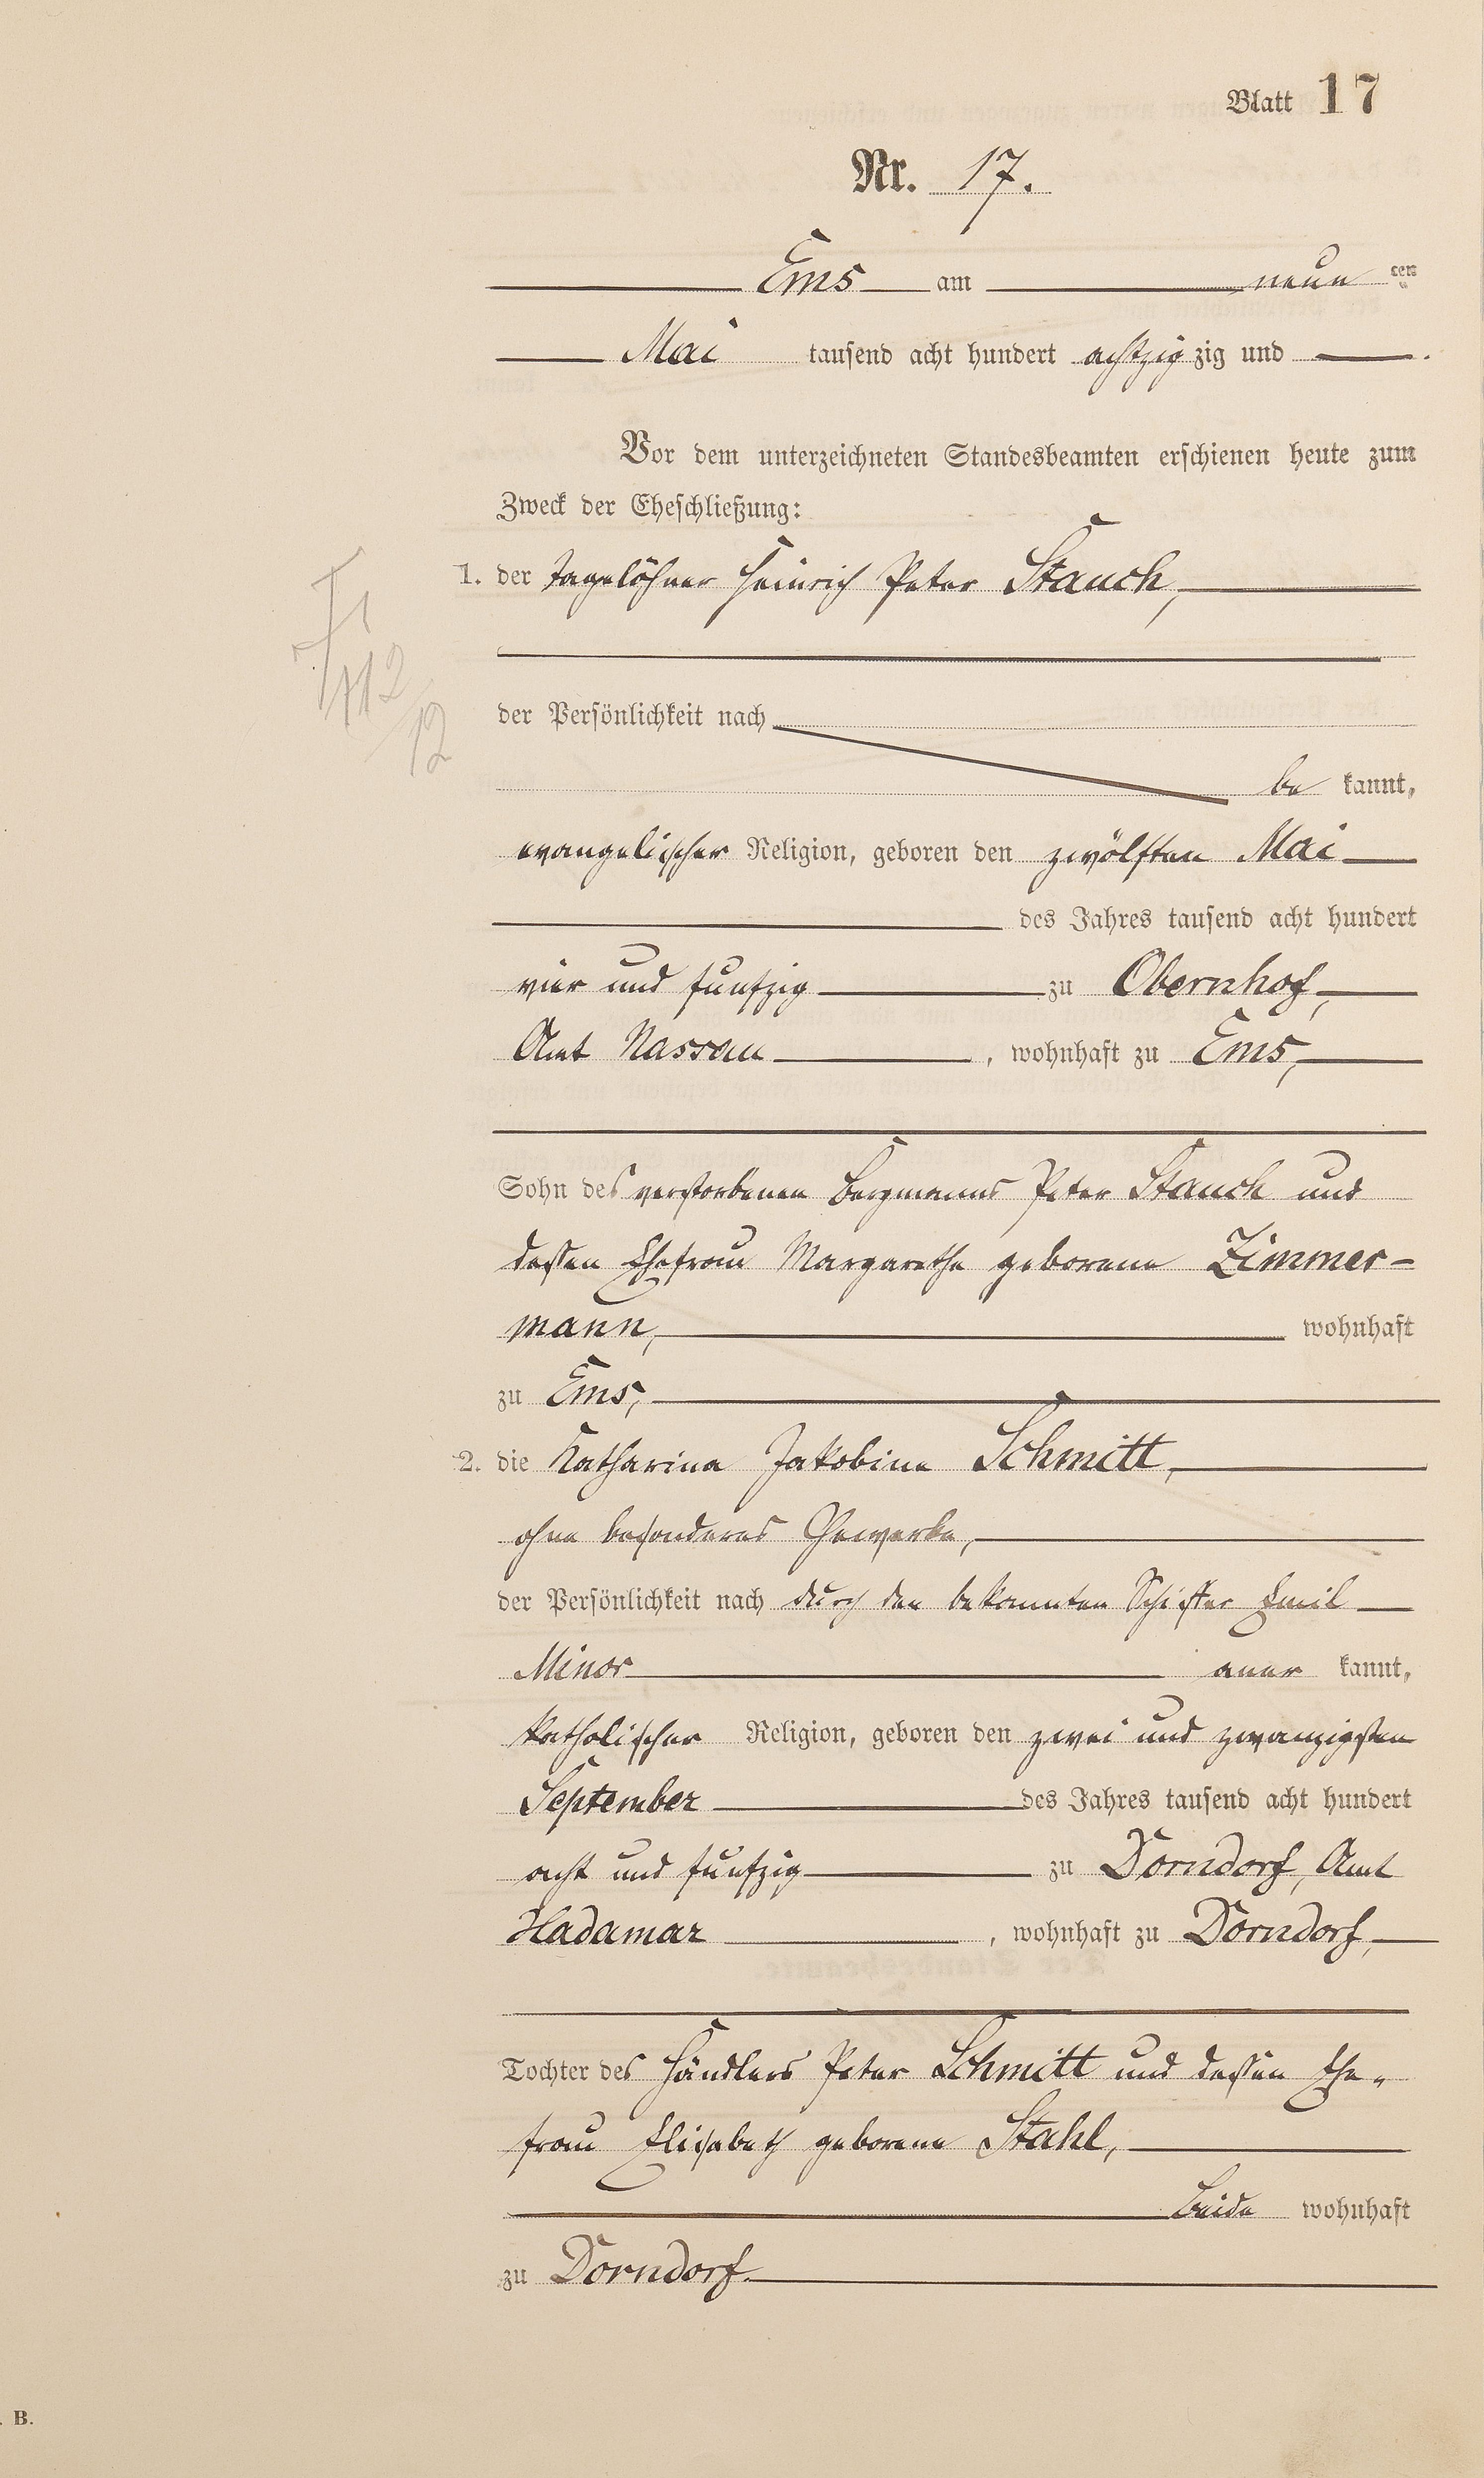 Blatt 17
Nr. 17.
Ems am neun ten
Mai tausend acht hundert achtzig zig und
Vor dem unterzeichneten Standesbeamten erschienen heute zum
Zweck der Eheschließung:
1. der Tagelöhner Heinrich Peter Stauch,
der Persönlichkeit nach
be kannt,
evangelischer Religion, geboren den zwölften Mai
des Jahres tausend acht hundert
vier und fünfzig zu Obernhof,
Amt Nassau, wohnhaft zu Ems,
Sohn des verstorbenen Bergmanns Peter Stauch und
dessen Ehefrau Margarethe geborene Zimmer-
mann, wohnhaft
zu Ems,
2. die Katharina Jakobine Schmitt,
ohne besonderes Gewerbe,
der Persönlichkeit nach durch den bekannten Schiffer Emil
Minor aner kannt,
katholischer Religion, geboren den zwei und zwanzigsten
September des Jahres tausend acht hundert
acht und fünfzig zu Dorndorf, Amt
Hadamar, wohnhaft zu Dorndorf,
Tochter des Händlers Peter Schmitt und dessen Ehe-
frau Elisabeth geborene Stahl,
beide wohnhaft
zu Dorndorf.
B.